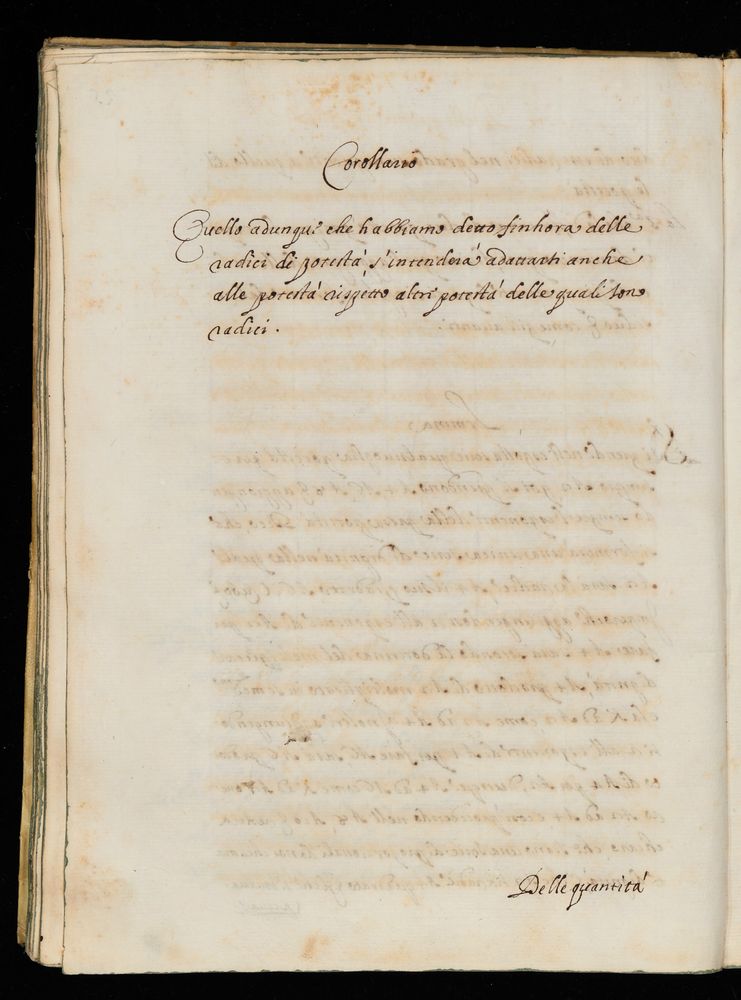 Corollario
Quello adunque che habbiamo detto sinhora delle
radici di potestà, s'intenderà adattarsi anche
alle potestà rispetto altre potestà delle quali sono
radici.
Delle quantità